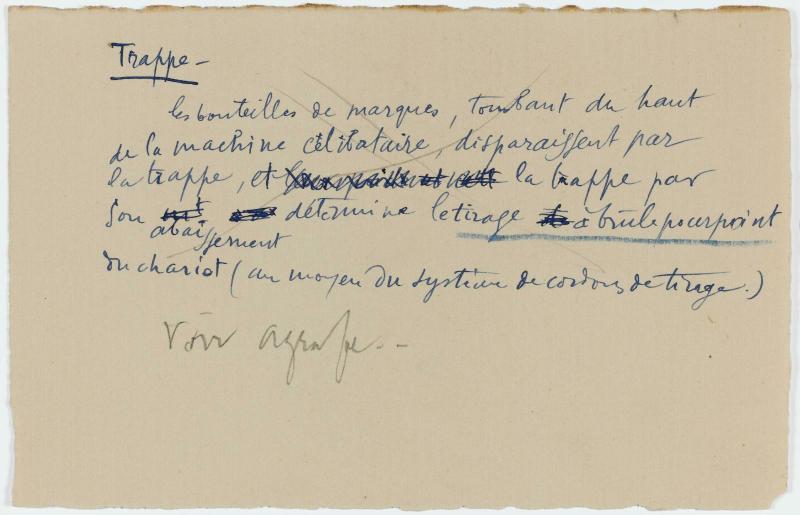 Trappe –
les bouteilles de marques, tombant du haut
de la machine célibataire, disparaissent par
la trappe, et la trappe par
son abaissement détermine le tirage à brûle pourpoint
du chariot (au moyen du système de cordons de tirage.)
Voir agrafes –